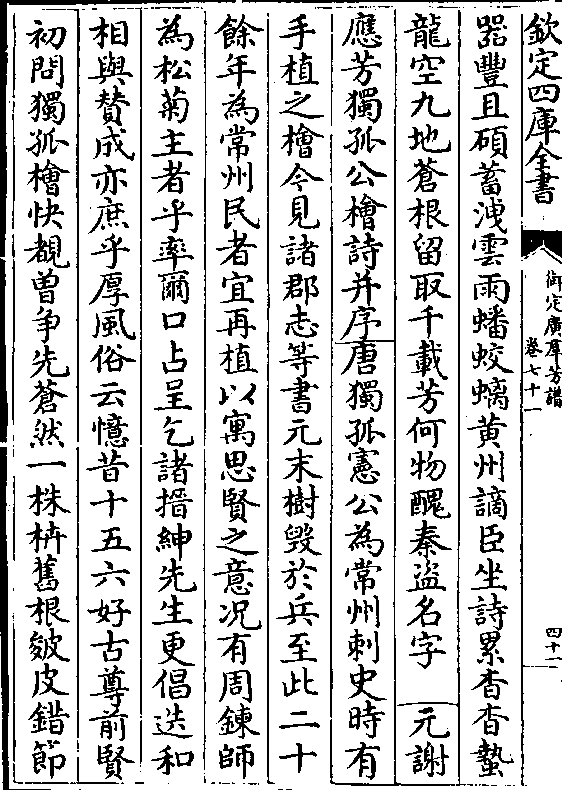 欽定四庫全書
御定廣羣芳譜
卷七十一
四十一
器豐且碩蓄洩雲雨蟠蛟螭黄州謫臣坐詩累杳杳蟄
龍空九地蒼根留取千載芳何物醜秦盜名字 元謝
應芳獨孤公檜詩并序唐獨孤憲公為常州刺史時有
手植之檜今見諸郡志等書元末樹毀於兵至此二十
餘年為常州民者宜再植以寓思賢之意况有周鍊師
為松菊主者乎率爾口占呈乞諸搢紳先生更倡迭和
相與賛成亦庶乎厚風俗云憶昔十五六好古尊前賢
初問獨孤檜快覩曾争先蒼然一株枿舊根皴皮錯節